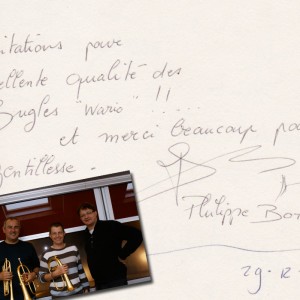 itations pour
ellente qualité des
Bugles "Wario" !! .....
et merci beaucoup pou
gentillesse.
Philippe Bor
29.12